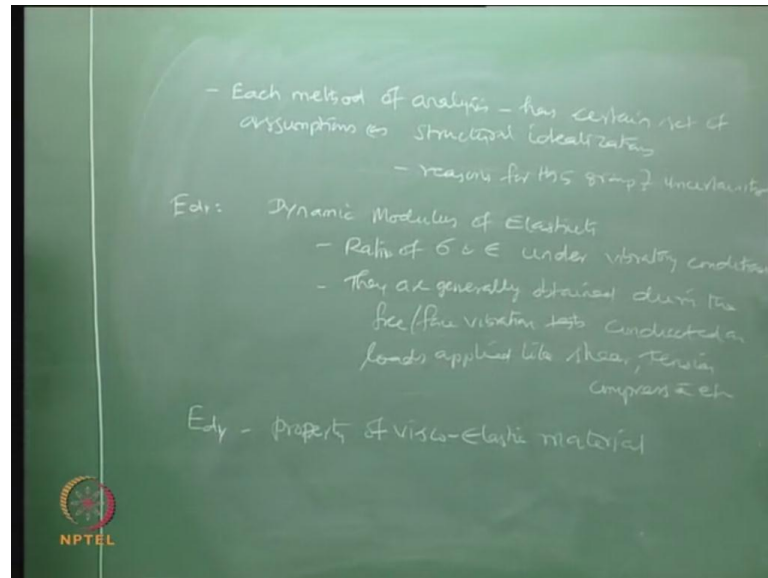 - Each method of analysis - has certain set of
assumptions on structural idealization
- reasons for this group of uncertainties
Edy: Dynamic Modulus of Elasticity
- Ratio of σ & ε under vibratory condition
- They are generally obtained during the
free/force vibration tests conducted on
loads applied like shear, Tension,
compression etc
Edy - property of visco-Elastic material
NPTEL